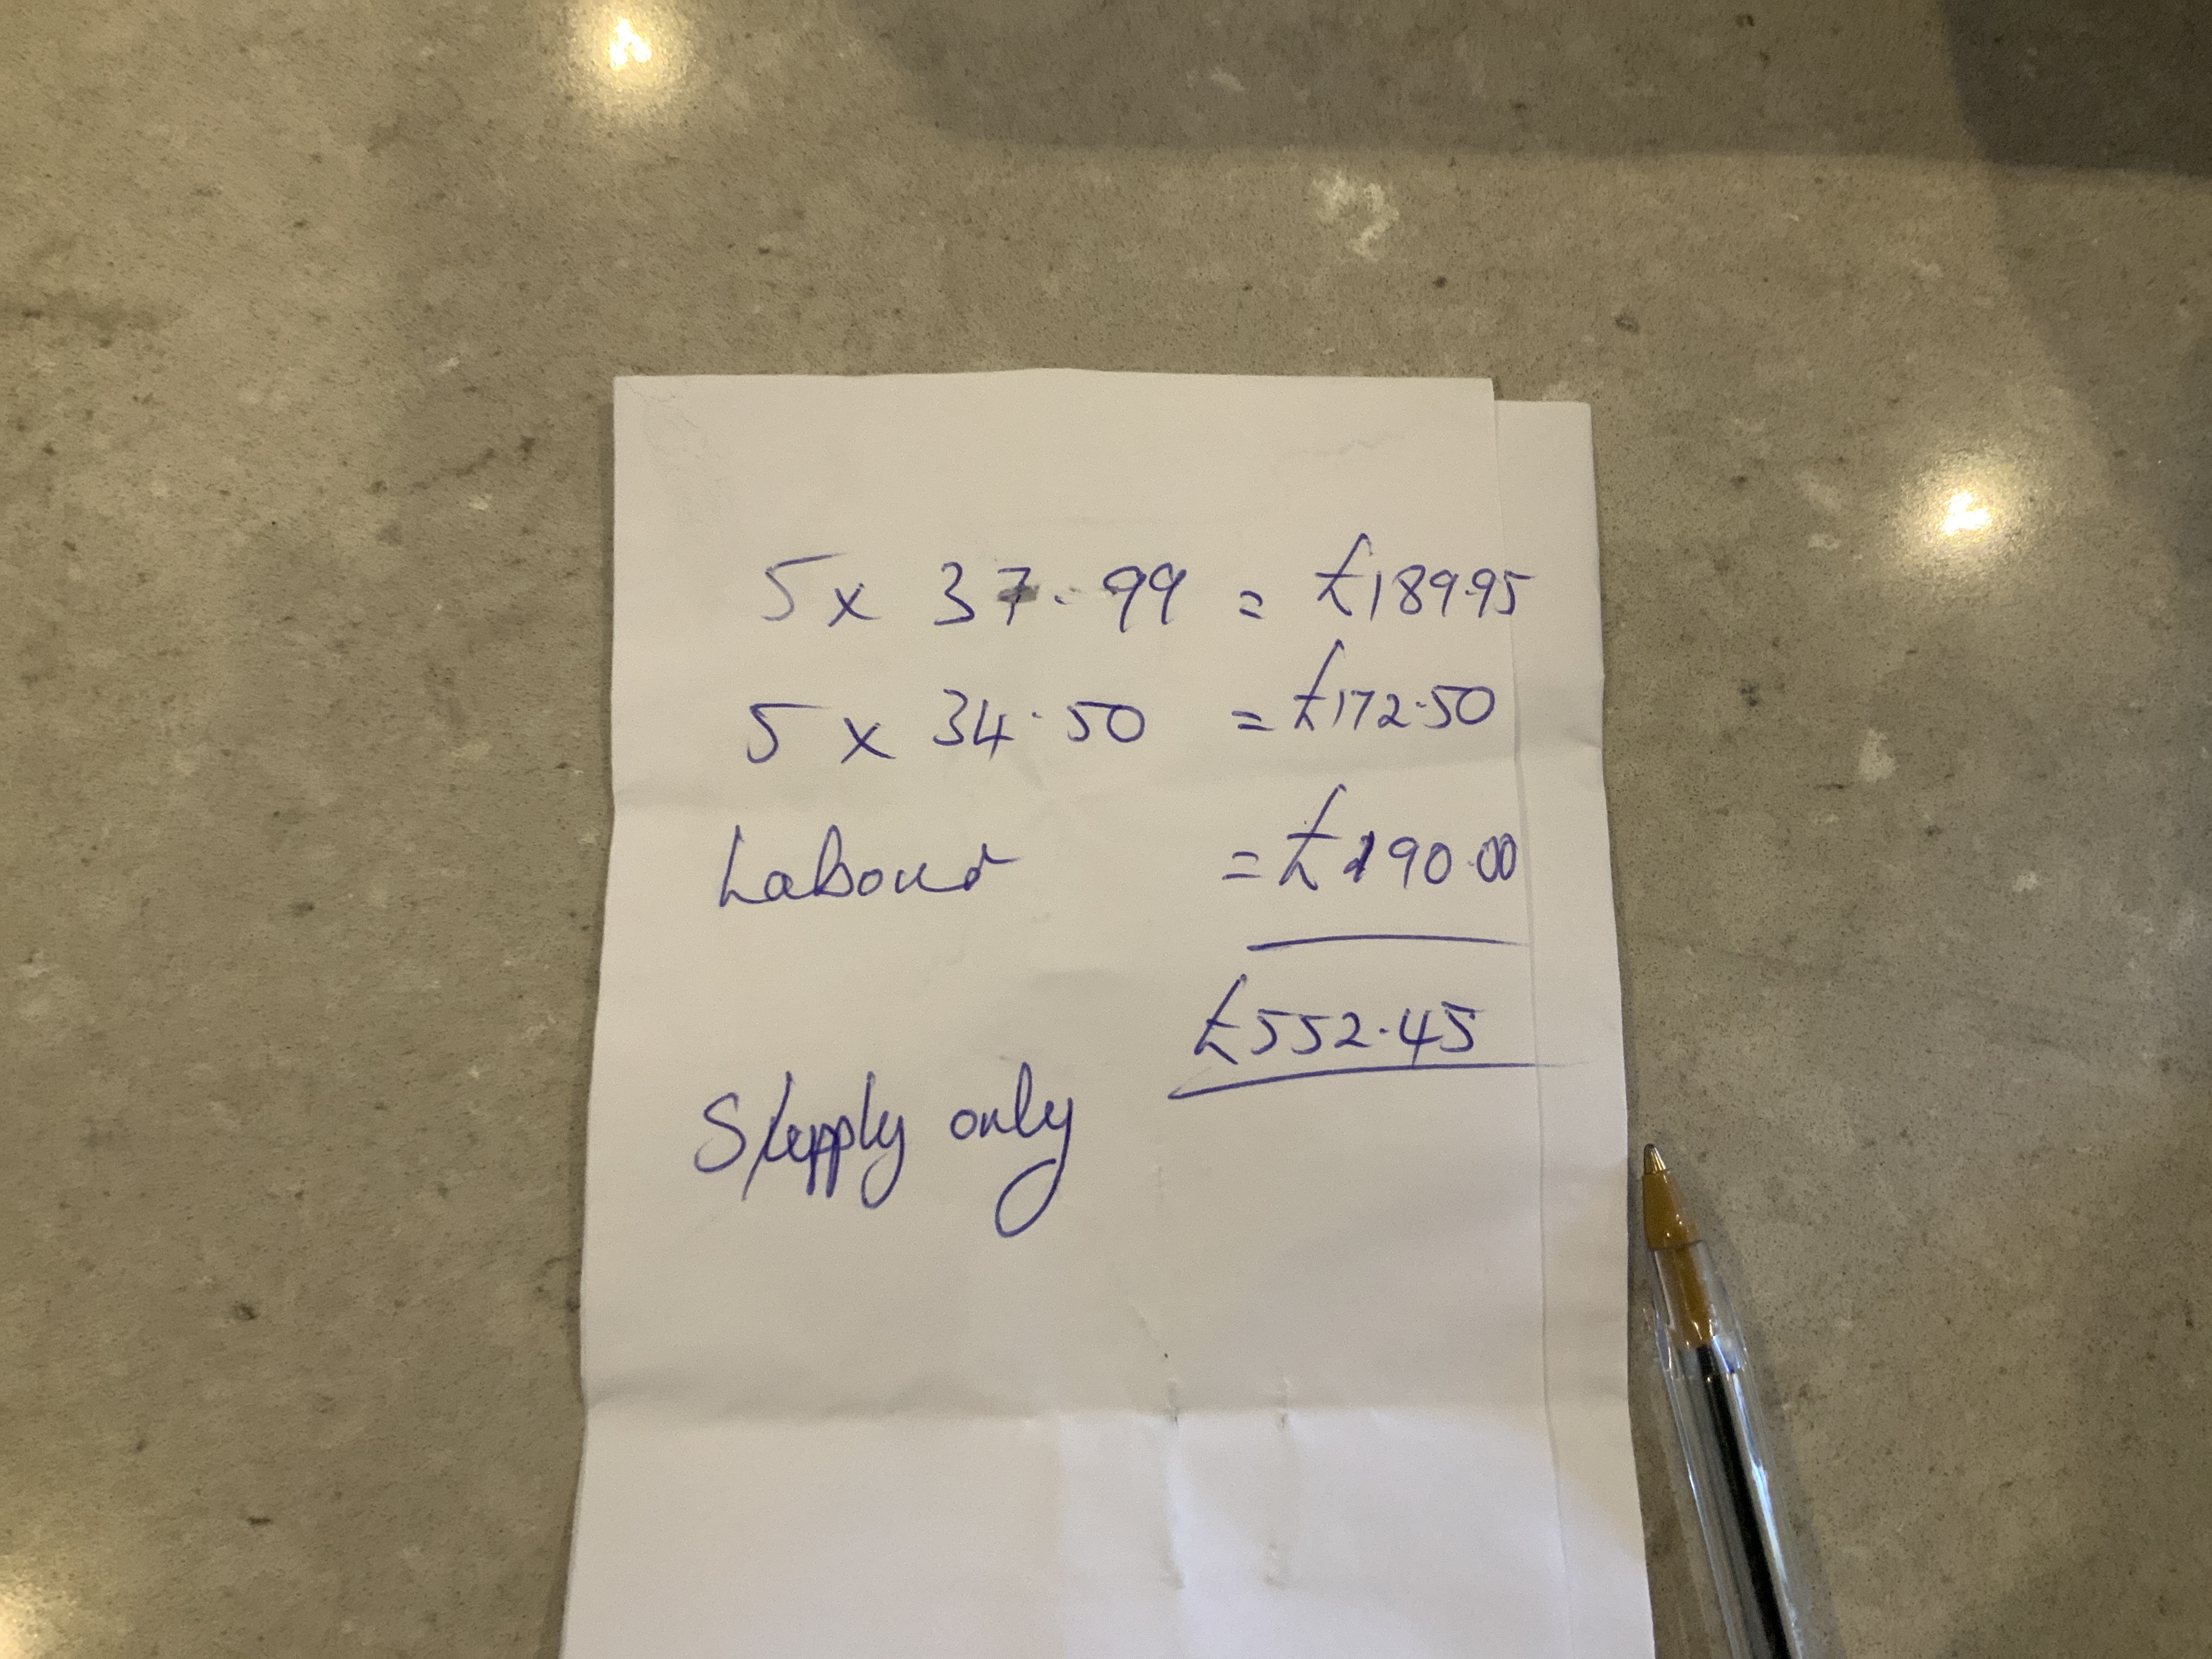 5 x 37.99 = £189.95
5 x 34.50 = £172.50
Labour = £190.00
£552.45
Supply only